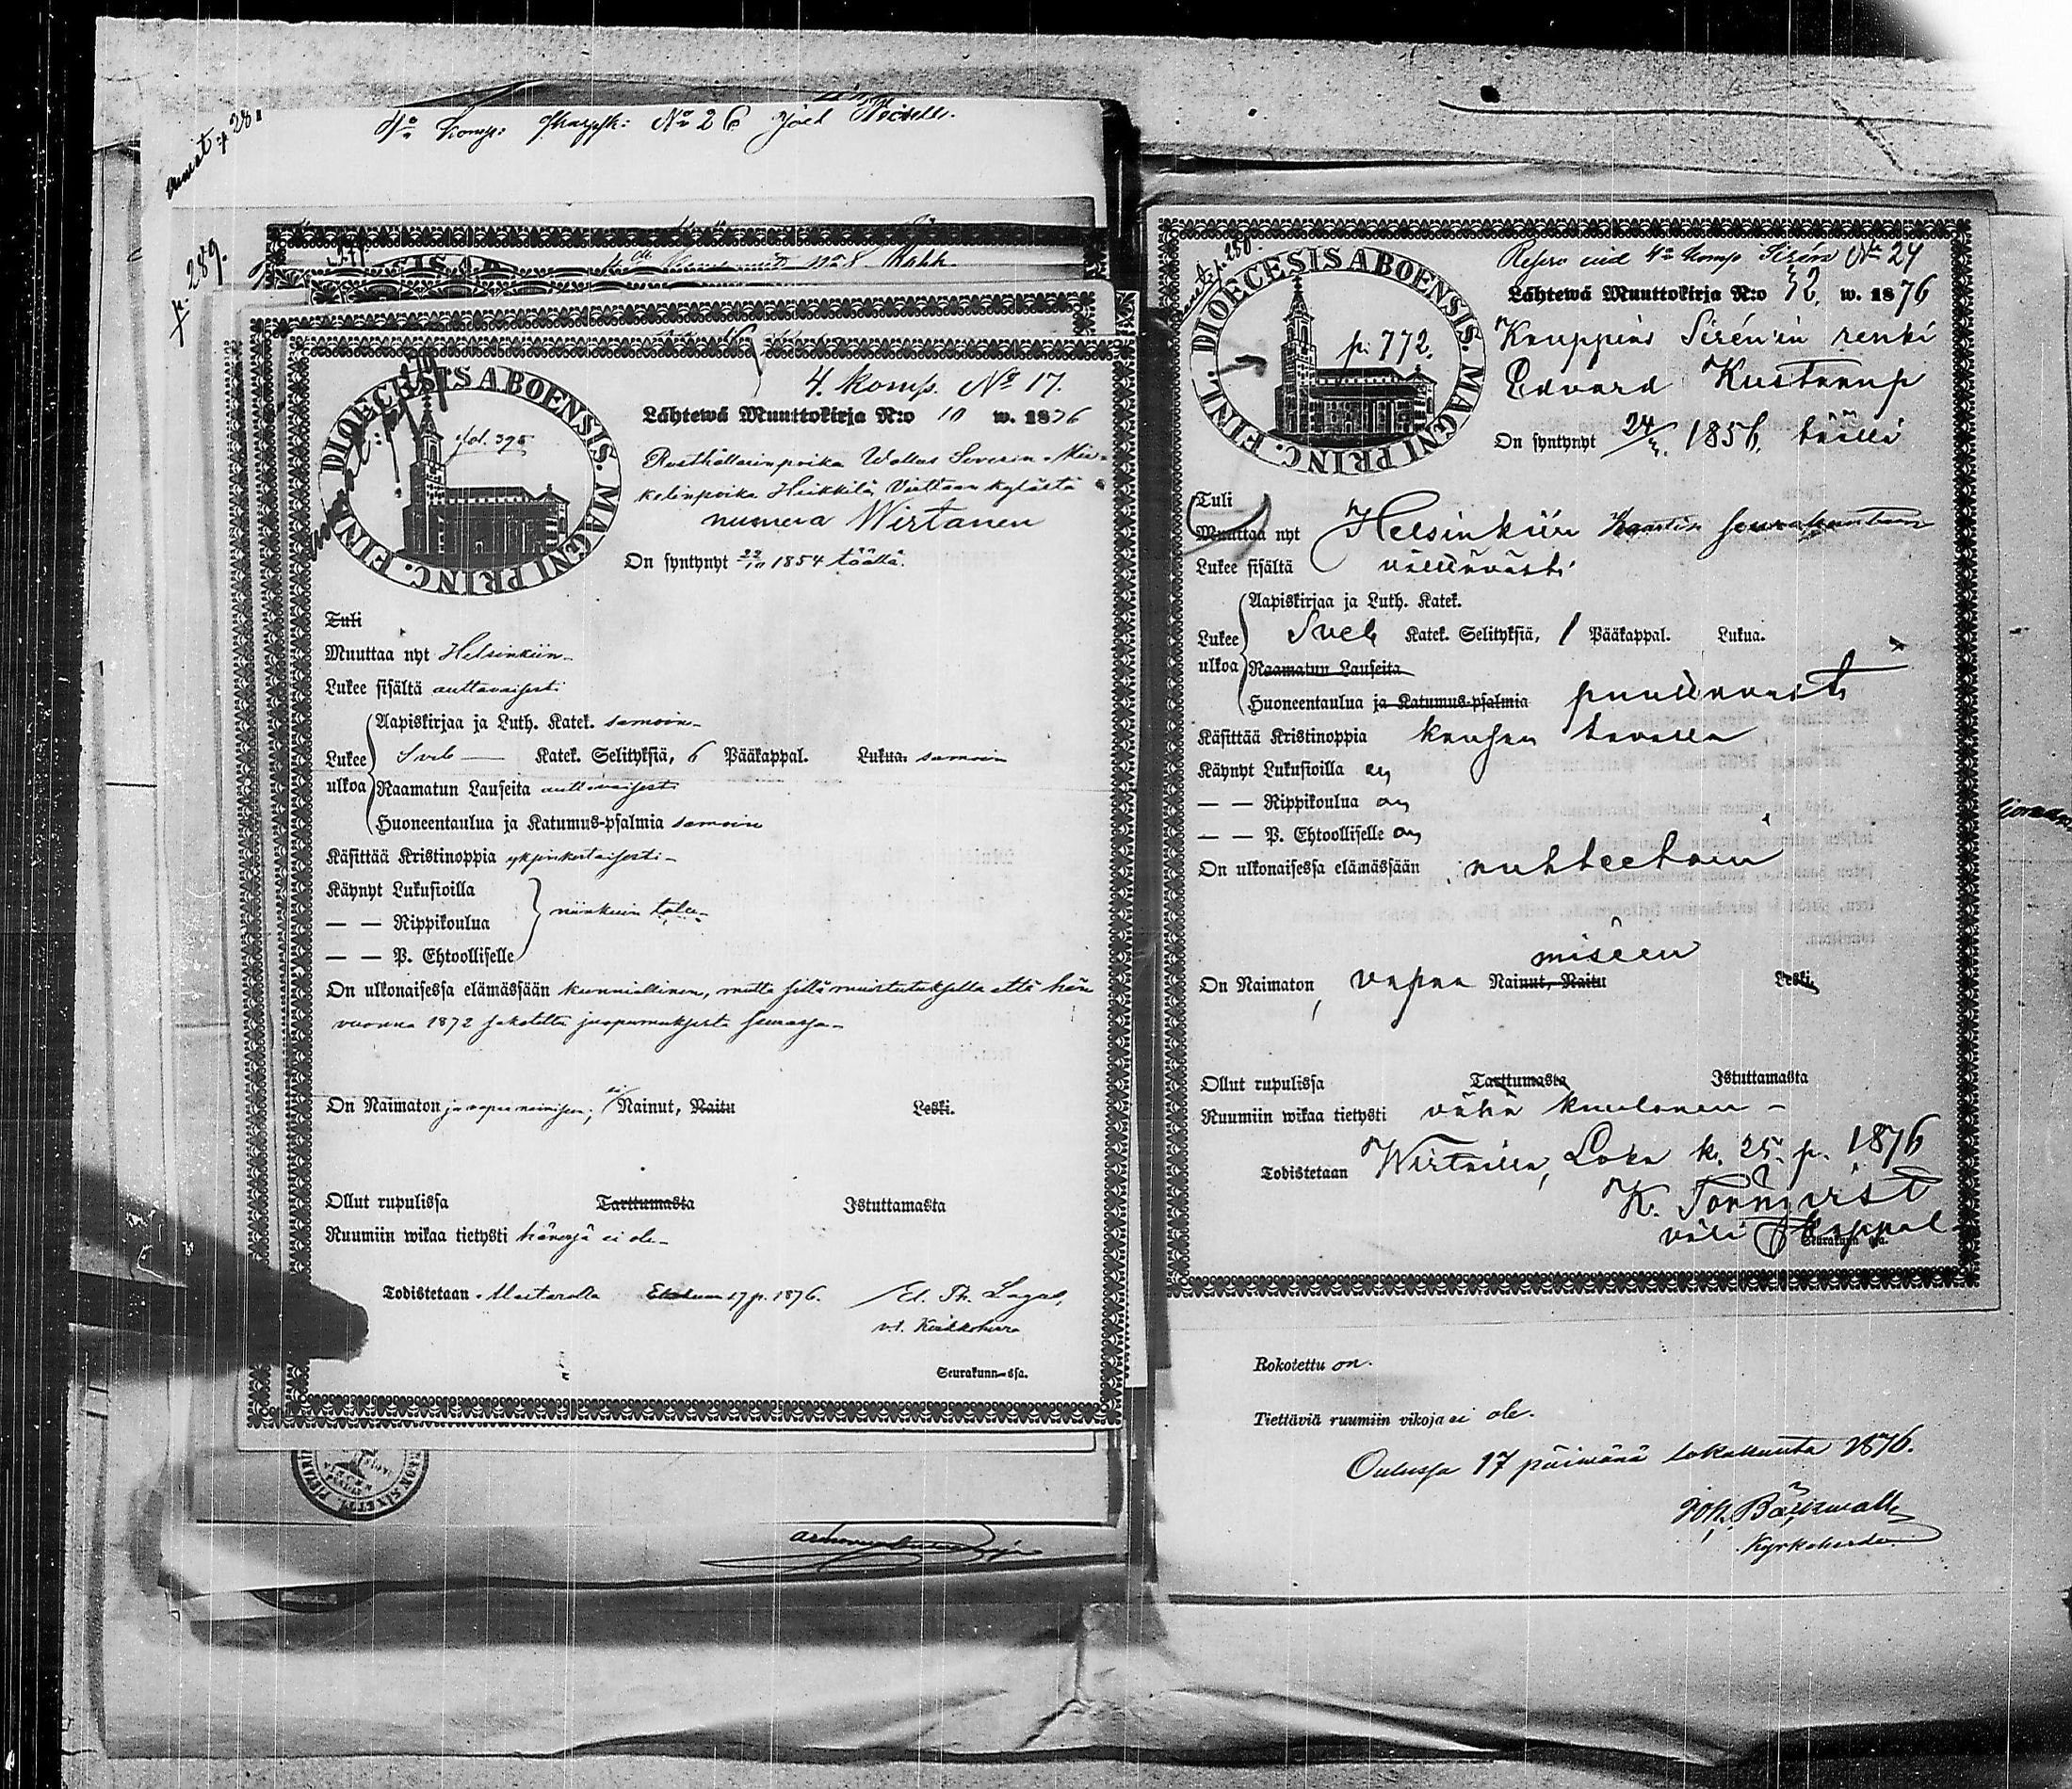 4. Komp. No 26
p. 289.
4. Komp. No 17.
DIOECESIS ABOENSIS. MAGNI PRINC. FINL.
fol. 395
Lähtewä Muuttokirja N:o 10 w. 1876
Rusthollarinpoika Wallus Severin Mi-
kelinpoika Heikkilä, kylästä
numera Wirtanen
On syntynyt 22/10 1854 täällä.
Tuli
Muuttaa nyt Helsinkiin
Lukee sisältä auttavaisesti
Lukee ulkoa
Aapiskirjaa ja Luth. Katek. samoin
Sveb Katek. Selityksiä, 6 Pääkappal. Lukua. samoin
Raamatun Lauseita auttavaisesti
Huoneentaulua ja Katumus-psalmia samoin
Käsittää Kristinoppia yksinkertaisesti
Käynyt Lukusioilla
— — Rippikoulua niinkuin tulee
— — P. Ehtoolliselle
On ulkonaisessa elämässään kunniallinen, mutta sillä muistutuksella että hän
vuonna 1872 sakotettu juopumuksesta
On Naimaton ja vapaa naimiseen, ei Nainut, Naitu Leski.
Ollut rupulissa Tarttumasta Istuttamasta
Ruumiin wikaa tietysti hänessä ei ole
Todistetaan 17 p. 1876.
v.t. Kirkkoherra
Seurakunn—ssa.
4:a Komp Sirén No 24
DIOECESIS ABOENSIS. MAGNI PRINC. FINL.
p. 772.
Lähtewä Muuttokirja N:o 32, w. 1876
Kauppias Sirén'in renki
Edvard Kustaanp
On syntynyt 24/3. 1856, täällä
Tuli
Muuttaa nyt Helsinkiin Kaartin seurakuntaan
Lukee sisältä välttävästi
Lukee ulkoa
Aapiskirjaa ja Luth. Katek.
Sveb Katek. Selityksiä, 1 Pääkappal. Lukua.
Raamatun Lauseita
Huoneentaulua ja Katumus-psalmia puuttuvaisesti
Käsittää Kristinoppia kansan tavalla
Käynyt Lukusioilla on
— — Rippikoulua on
— — P. Ehtoolliselle on
On ulkonaisessa elämässään nuhteetoin
miseen
On Naimaton, vapaa Nainut, Naitu Leski,
Ollut rupulissa Tarttumasta Istuttamasta
Ruumiin wikaa tietysti vähä kuulonen
Todistetaan Wirtailla, Loka k. 25. p. 1876
K. Tornqvist
väli Kappal
Seurakunn ssa.
Rokotettu on.
Tiettäviä ruumiin vikoja ei ole.
Oulussa 17 päivänä lokakuuta 1876.
Joh. Bäckwall
Kyrkoherde